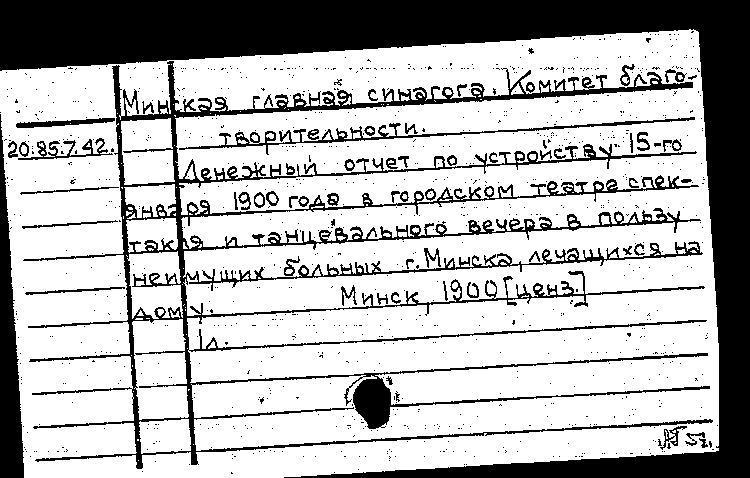 Минская главная синагога. Комитет благо-
творительности.
20.85.7.42.
Денежный отчет по устройству 15-го
января 1900 года в городском театре спек-
такля и танцевального вечера в пользу
неимущих больных г. Минска, лечащихся на
дому. Минск, 1900 [ценз.]
1л.
57.